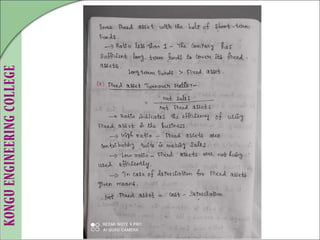 KONGU ENGINEERING COLLEGE
Some fixed asset with the help of short-term
funds.
→ Ratio less than 1 - The company has
sufficient long term funds to cover its fixed
assets.
long term funds > fixed asset.
fixed asset Turnover Ratio:-
= net sales
net fixed assets
→ Ratio indicates the efficiency of using
fixed asset in the business.
→ High ratio - fixed assets are
contributing quite in making sales.
→ Low ratio - fixed assets are not being
used efficiently.
→ In case of depreciation for fixed assets
given means.
net fixed asset = cost - Depreciation
REDMI NOTE 9 PRO
AI QUAD CAMERA